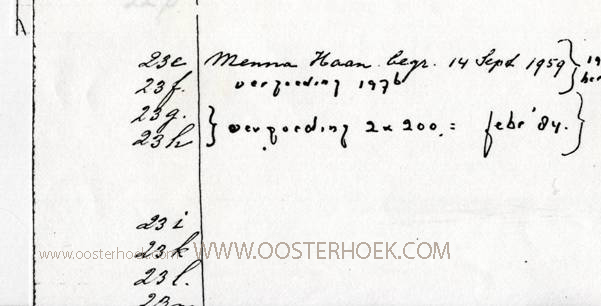 23e Menna Haan. begr. 14 Sept 1959 } 19
23f. vergoeding 1976
23g.
23h } vergoeding 2 x 200.= febr '84. }
23i
www.oosterhoek.com 23k WWW.OOSTERHOEK.COM
23l.